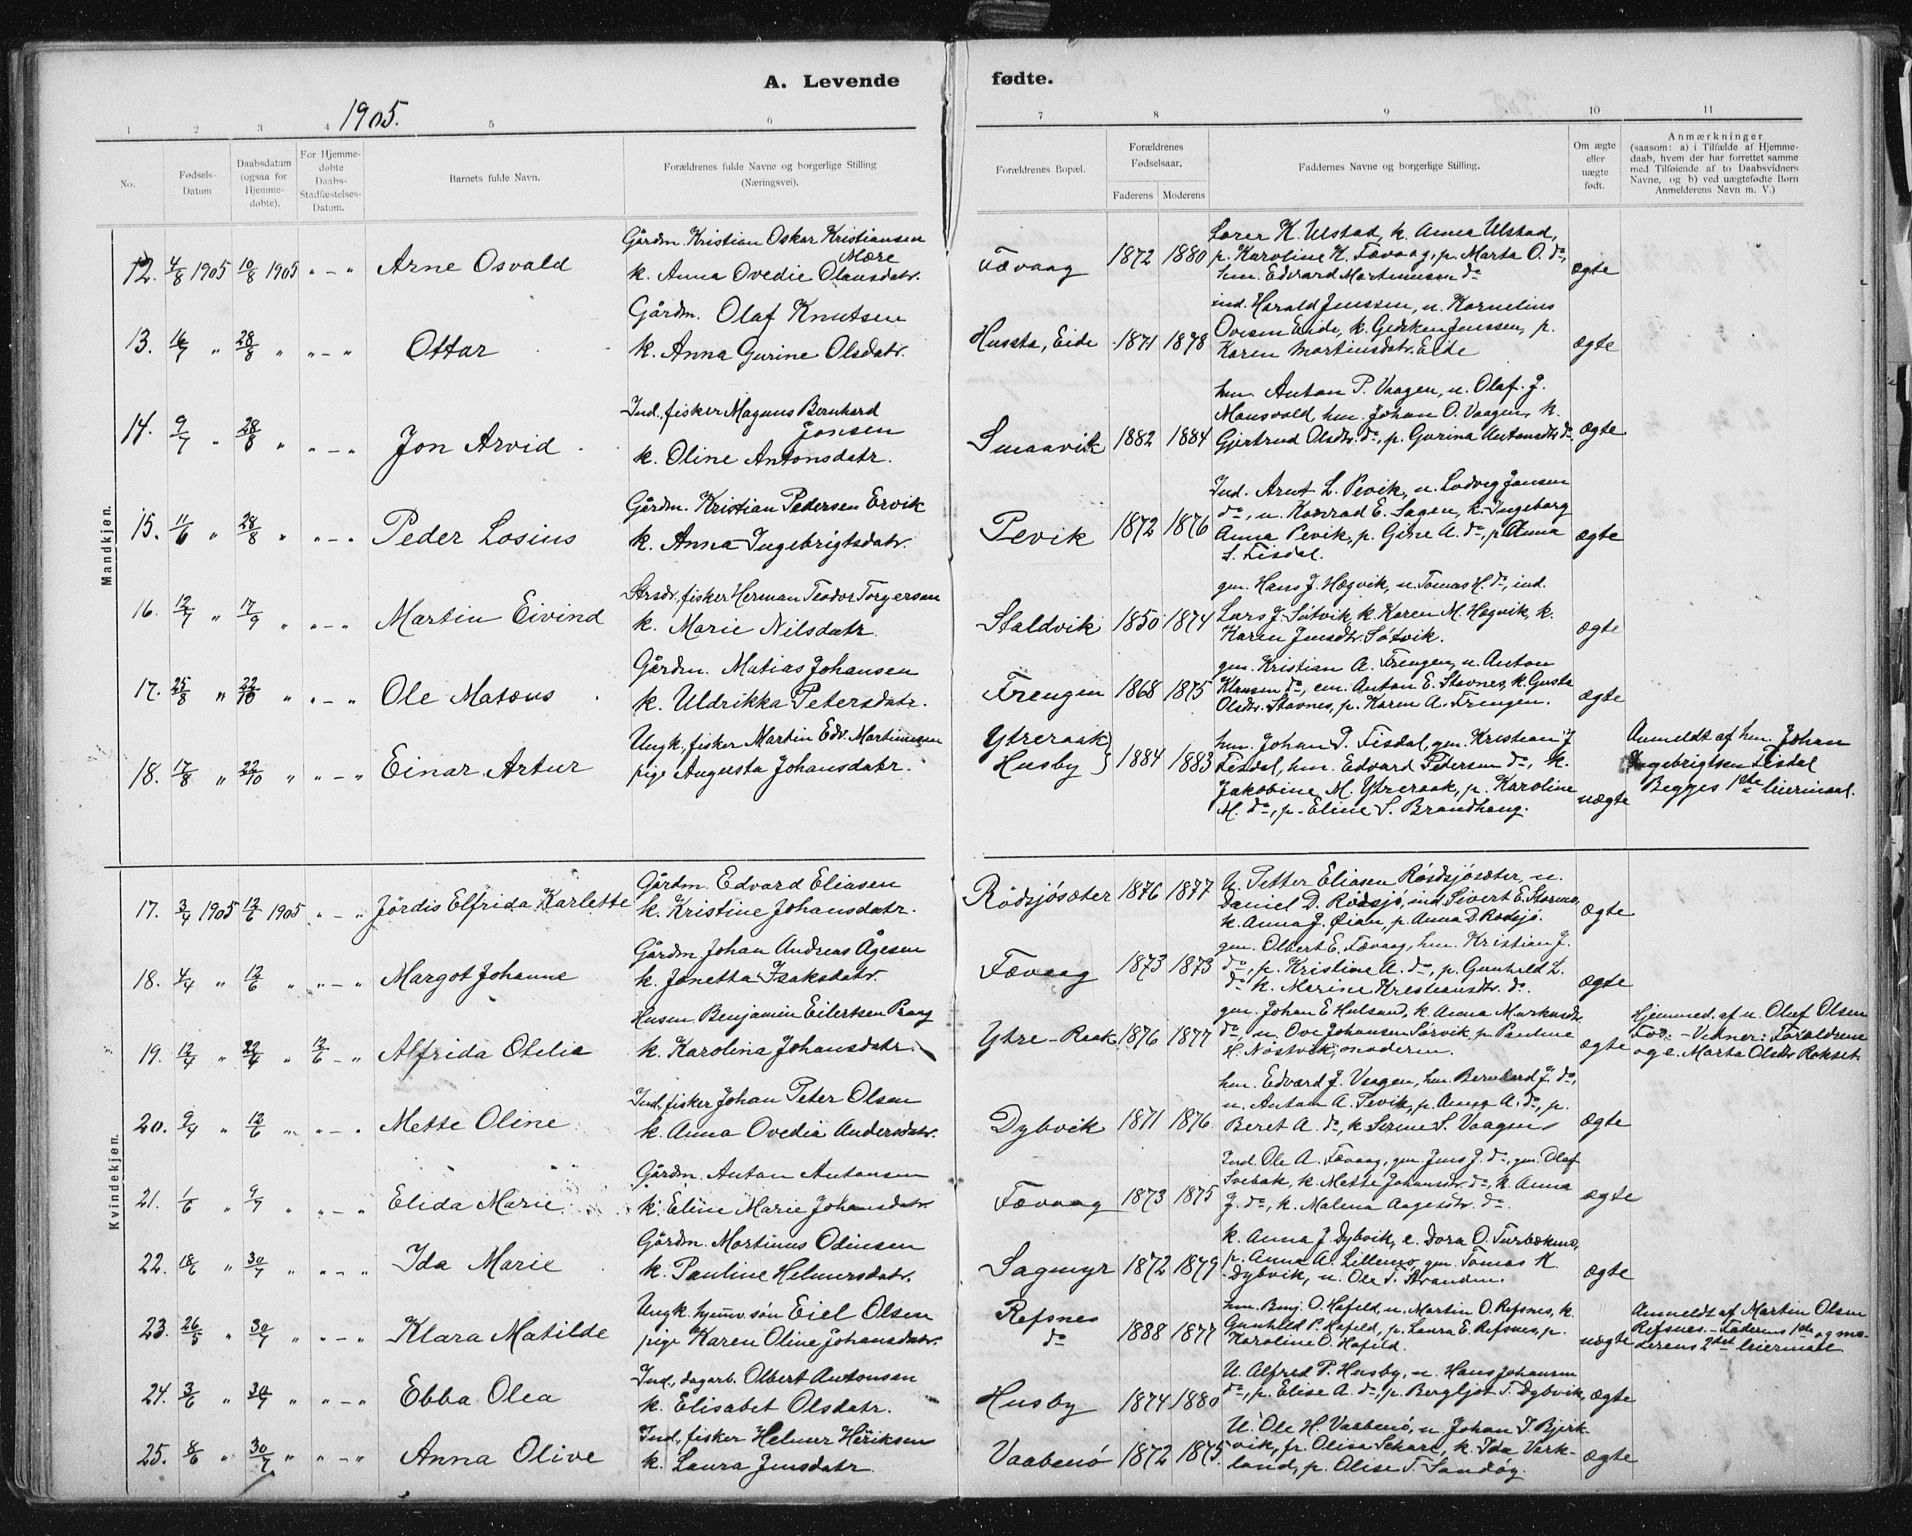 A. Levende fødte.
1905.
1 2 3 4 5 6 7 8 9 10 11
No.
Fødsels-Datum
Daabsdatum (ogsaa for Hjemme-døbte).
For Hjemme-døbte Daabs-Stadfæstelses-Datum.
Barnets fulde Navn.
Forældrenes fulde Navne og borgerlige Stilling (Næringsvei).
Forældrenes Bopæl.
Forældrenes Fødselsaar.
Faderens Moderens
Faddernes Navne og borgerlige Stilling.
Om ægte eller uægte født.
Anmærkninger
(saasom: a) i Tilfælde af Hjemme-
daab, hvem der har forrettet samme
med Tilføiende af to Daabsvidners
Navne, og b) ved uægtefødte Børn
Anmelderens Navn m. V.)
Mandkjøn.
12. 4/8 1905 10/8 1905 " - " Arne Osvald
Gårdm. Kristian Oskar Kristiansen
Mære
k. Anna Ovedie Olausdatr.
Fævaag 1872 1880
Lærer K. Ulstad, k. Anna Ulstad,
p. Karoline K. Fævaag, p. Marta O. do,
hm. Edvard Martinussen do
ægte
13. 16/7 " 28/8 " " - " Ottar
Gårdm. Olaf Knutsen
k. Anna Gurine Olsdatr.
Hussta, Eide 1871 1878
ind. Harald Jenssen, u. Kornelius
Ovesen Eide, k. Gjerken Jenssen, p.
Karen Martinsdatr. Eide
ægte
14. 9/7 " 28/8 " " - " Jon Arvid
Ind., fisker Magnus Bernhard
Jonsen
k. Oline Antonsdatr.
Smaavik 1882 1884
hm. Anton P. Vaagen, u. Olaf J.
Mausvold, hm. Johan O. Vaagen, k.
Gjertrud Olsdtr. do, p. Gurina Antonsdtr. do
ægte
15. 11/6 " 28/8 " " - " Peder Losius
Gårdm. Kristian Pedersen Ervik
k. Anna Ingebrigtsdatr.
Pevik 1872 1876
Ind. Arnt L. Pevik, u. Ludvig Jansen
do, u. Konrad E. Sagen, k. Ingeborg
Anna Pevik, p. Gine A. do, p. Anna
S. Fisdal.
ægte
16. 12/7 " 17/9 " " - " Martin Eivind
Strsdr, fisker Herman Teodor Torgersen
k. Marie Nilsdatr.
Staldvik 1850 1874
gm. Hans J. Hægvik, u. Tomas H. do, ind.
Lars J. Søtvik, k. Karen M. Hegvik, k.
Karen Jensdtr. Søtvik.
ægte
17. 25/8 " 22/10 " " - " Ole Matæus
Gårdm. Matias Johansen
k. Uldrikka Petersdatr.
Frengen 1868 1875
gm. Kristian A. Frengen, u. Anton
Klausen do, em. Anton E. Stavnes, k. Gusta
Olsdtr. Stavnes, p. Karen A. Frengen.
ægte
18. 17/8 " 22/10 " " - " Einar Artur
Ungk., fisker Martin Edv. Martinussen
pige Augusta Johansdatr.
Ytreraak
Husby 1884 1883
hm. Johan P. Fisdal, gm. Kristian J.
Fisdal, hm. Edvard Pedersen do, k.
Jakobine M. Ytreraak, p. Karoline
M. do, p. Eline S. Brandhaug.
uægte
Anmeldt af hm. Johan
Ingebrigtsen Fisdal
Begges 1ste leiermaal.
Kvindekjøn.
17. 3/4 1905 12/6 1905 " - " Jørdis Elfrida Karlette
Gårdm. Edvard Eliasen
k. Kristine Johansdatr.
Rødsjøsæter 1876 1877
U. Petter Eliasen Rødsjøsæter, u.
Daniel D. Rødsjø, ind. Sivert E. Stormo,
k. Anna J. Øian, p. Anna D. Rødsjø.
ægte
18. 4/4 " 12/6 " " - " Margot Johanne
Gårdm. Johan Andreas Ågesen
k. Jonetta Isaksdatr.
Fævaag 1873 1873
gm. Olbert E. Fævaag, hm. Kristian J.
do, p. Kristine A. do, p. Gunhild L.
do k. Marine Kristiansdtr. do.
ægte
19. 12/4 " 22/4 " 12/6 - " Alfrida Otelie
Husm. Benjamin Eilertsen Prang
k. Karolina Johansdatr.
Ytre-Raak 1876 1877
gm. Johan E. Hulsand, k. Anna Markusdtr.
do, u. Ove Johansen Sørvik, p. Pauline
H. Nøstvik, moderen.
ægte
Hjemmed. af u. Oluf Olsen
Fod. - Vidner: Forældrene
og e. Marta Olsdtr. Rokset
20. 9/4 " 12/6 " " - " Mette Oline
Ind., fisker Johan Peter Olsen
k. Anna Ovedia Andersdatr.
Dybvik 1871 1876
hm. Edvard J. Vaagen, hm. Bernhard J. do,
u. Anton A. Pevik, p. Anna A. do, p.
Beret A. do, k. Serine S. Vaagen
ægte
21. 1/6 " 9/7 " " - " Elida Marie
Gårdm. Anton Antonsen
k. Eline Marie Johansdatr.
Fævaag 1873 1875
Ind. Ole A. Fævaag, gm. Jens J. do, gm. Olaf
Svebak, k. Mette Johansdtr. do, k. Anna
J. do, k. Malena Aagesdtr. do.
ægte
22. 18/6 " 30/7 " " - " Ida Marie
Gårdm. Martinus Odinsen
k. Pauline Helmersdatr.
Sagmyr 1872 1879
k. Anna J. Dybvik, e. Dora O. Turbekmo,
p. Anna A. Lillemo, gm. Tomas K.
Dybvik, u. Ole T. Stranden.
ægte
23. 26/5 " 30/7 " " - " Klara Matilde
Ungk. hjemv. søn Eiel Olsen
pige Karen Oline Johansdatr.
Refsnes
do 1888 1877
hm. Benj. O. Hafeld, u. Martin O. Refsnes, k.
Gunhild P. Hafeld, p. Laura E. Refsnes, p.
Karoline O. Hafild.
uægte
Anmeldt af Martin Olsen
Refsnes. - Faderens 1ste og mo-
derens 2det leiermaal
24. 3/6 " 30/7 " " - " Ebba Olea
Ind., dagarb. Olbert Antonsen
k. Elisabet Olsdatr.
Husby 1874 1880
U. Alfred P. Husby, u. Hans Johansen
do, p. Elise A. do, p. Bergljot T. Dybvik,
ægte
25. 8/6 " 30/7 " " - " Anna Olive
Ind., fisker Helmer Hiriksen
k. Laura Jensdatr.
Vaabenø 1872 1875.
U. Ole H. Vaabenø, u. Johan I. Bjerk-
vik, fr. Olisa Schare, k. Ida Verk-
land, p. Olise T. Sandøy.
ægte